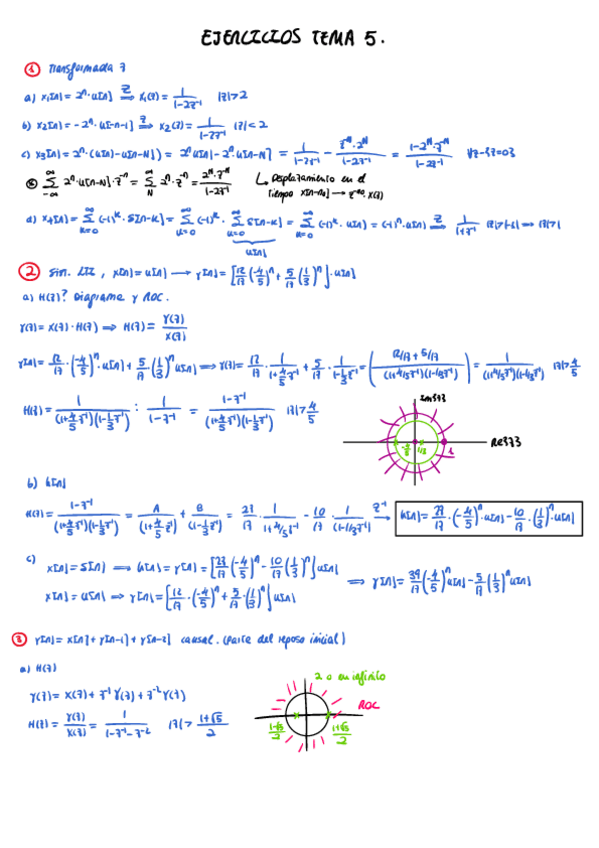 EJERCICIOS TEMA 5.
① Transformada z
a) x₁[n] = 2ⁿ·u[n] ⇒ᶻ X₁(z) = 1/(1-2z⁻¹) |z|>2
b) x₂[n] = -2ⁿ·u[-n-1] ⇒ᶻ X₂(z) = 1/(1-2z⁻¹) |z|<2
c) x₃[n] = 2ⁿ·(u[n]-u[n-N]) = 2ⁿu[n]-2ⁿ·u[n-N] = 1/(1-2z⁻¹) - z⁻ᴺ·2ᴺ/(1-2z⁻¹) = (1-2ᴺ·z⁻ᴺ)/(1-2z⁻¹) ∀z-{z=0}
⊗ Σ_{-∞}^{∞} 2ⁿ·u[n-N]·z⁻ⁿ = Σ_{N}^{∞} 2ⁿ·z⁻ⁿ = 2ᴺ·z⁻ᴺ/(1-2z⁻¹) ↳ Desplazamiento en el
tiempo x[n-n₀] → z⁻ⁿ⁰ X(z)
d) x₄[n] = Σ_{k=0}^{∞} (-1)ᵏ·δ[n-k] = Σ_{k=0}^{∞} (-1)ᵏ·Σ_{k=0}^{∞} δ[n-k] = Σ_{k=0}^{∞} (-1)ᵏ·u[n] = (-1)ⁿ·u[n] ⇒ᶻ 1/(1+z⁻¹) |z|>|-1| ⟹ |z|>1
u[n]
② Sin. LTI, x[n] = u[n] → y[n] = [12/17(-4/5)ⁿ + 5/17(1/3)ⁿ]·u[n]
a) H(z)? Diagrama y ROC.
Y(z) = X(z)·H(z) ⟹ H(z) = Y(z)/X(z)
y[n] = 12/17·(-4/5)ⁿ·u[n] + 5/17(1/3)ⁿu[n] ⟹ Y(z) = 12/17·1/(1+4/5z⁻¹) + 5/17·1/(1-1/3z⁻¹) = ((12/17+5/17)/((1+4/5z⁻¹)(1-1/3z⁻¹))) = 1/((1+4/5z⁻¹)(1-1/3z⁻¹)) |z|>4/5
H(z) = 1/((1+4/5z⁻¹)(1-1/3z⁻¹)) : 1/(1-z⁻¹) = (1-z⁻¹)/((1+4/5z⁻¹)(1-1/3z⁻¹)) |z|>4/5
Im{z}
Re{z}
-4/5 1/3 1
b) h[n]
H(z) = (1-z⁻¹)/((1+4/5z⁻¹)(1-1/3z⁻¹)) = A/(1+4/5z⁻¹) + B/(1-1/3z⁻¹) = 27/17·1/(1+4/5z⁻¹) - 10/17·1/(1-1/3z⁻¹) →ᶻ⁻¹ h[n] = 27/17·(-4/5)ⁿu[n] - 10/17·(1/3)ⁿ·u[n]
c) x[n] = δ[n] ⟹ h[n] = y[n] = [27/17(-4/5)ⁿ - 10/17(1/3)ⁿ]u[n]
x[n] = u[n] ⟹ y[n] = [12/17·(-4/5)ⁿ + 5/17(1/3)ⁿ]u[n] ⟹ y[n] = 39/17(-4/5)ⁿu[n] - 5/17(1/3)ⁿu[n]
③ y[n] = x[n] + y[n-1] + y[n-2] causal. (parte del reposo inicial)
a) H(z)
Y(z) = X(z) + z⁻¹Y(z) + z⁻²Y(z)
H(z) = Y(z)/X(z) = 1/(1-z⁻¹-z⁻²) |z| > (1+√5)/2
2 o en infinito
ROC
(1-√5)/2 (1+√5)/2